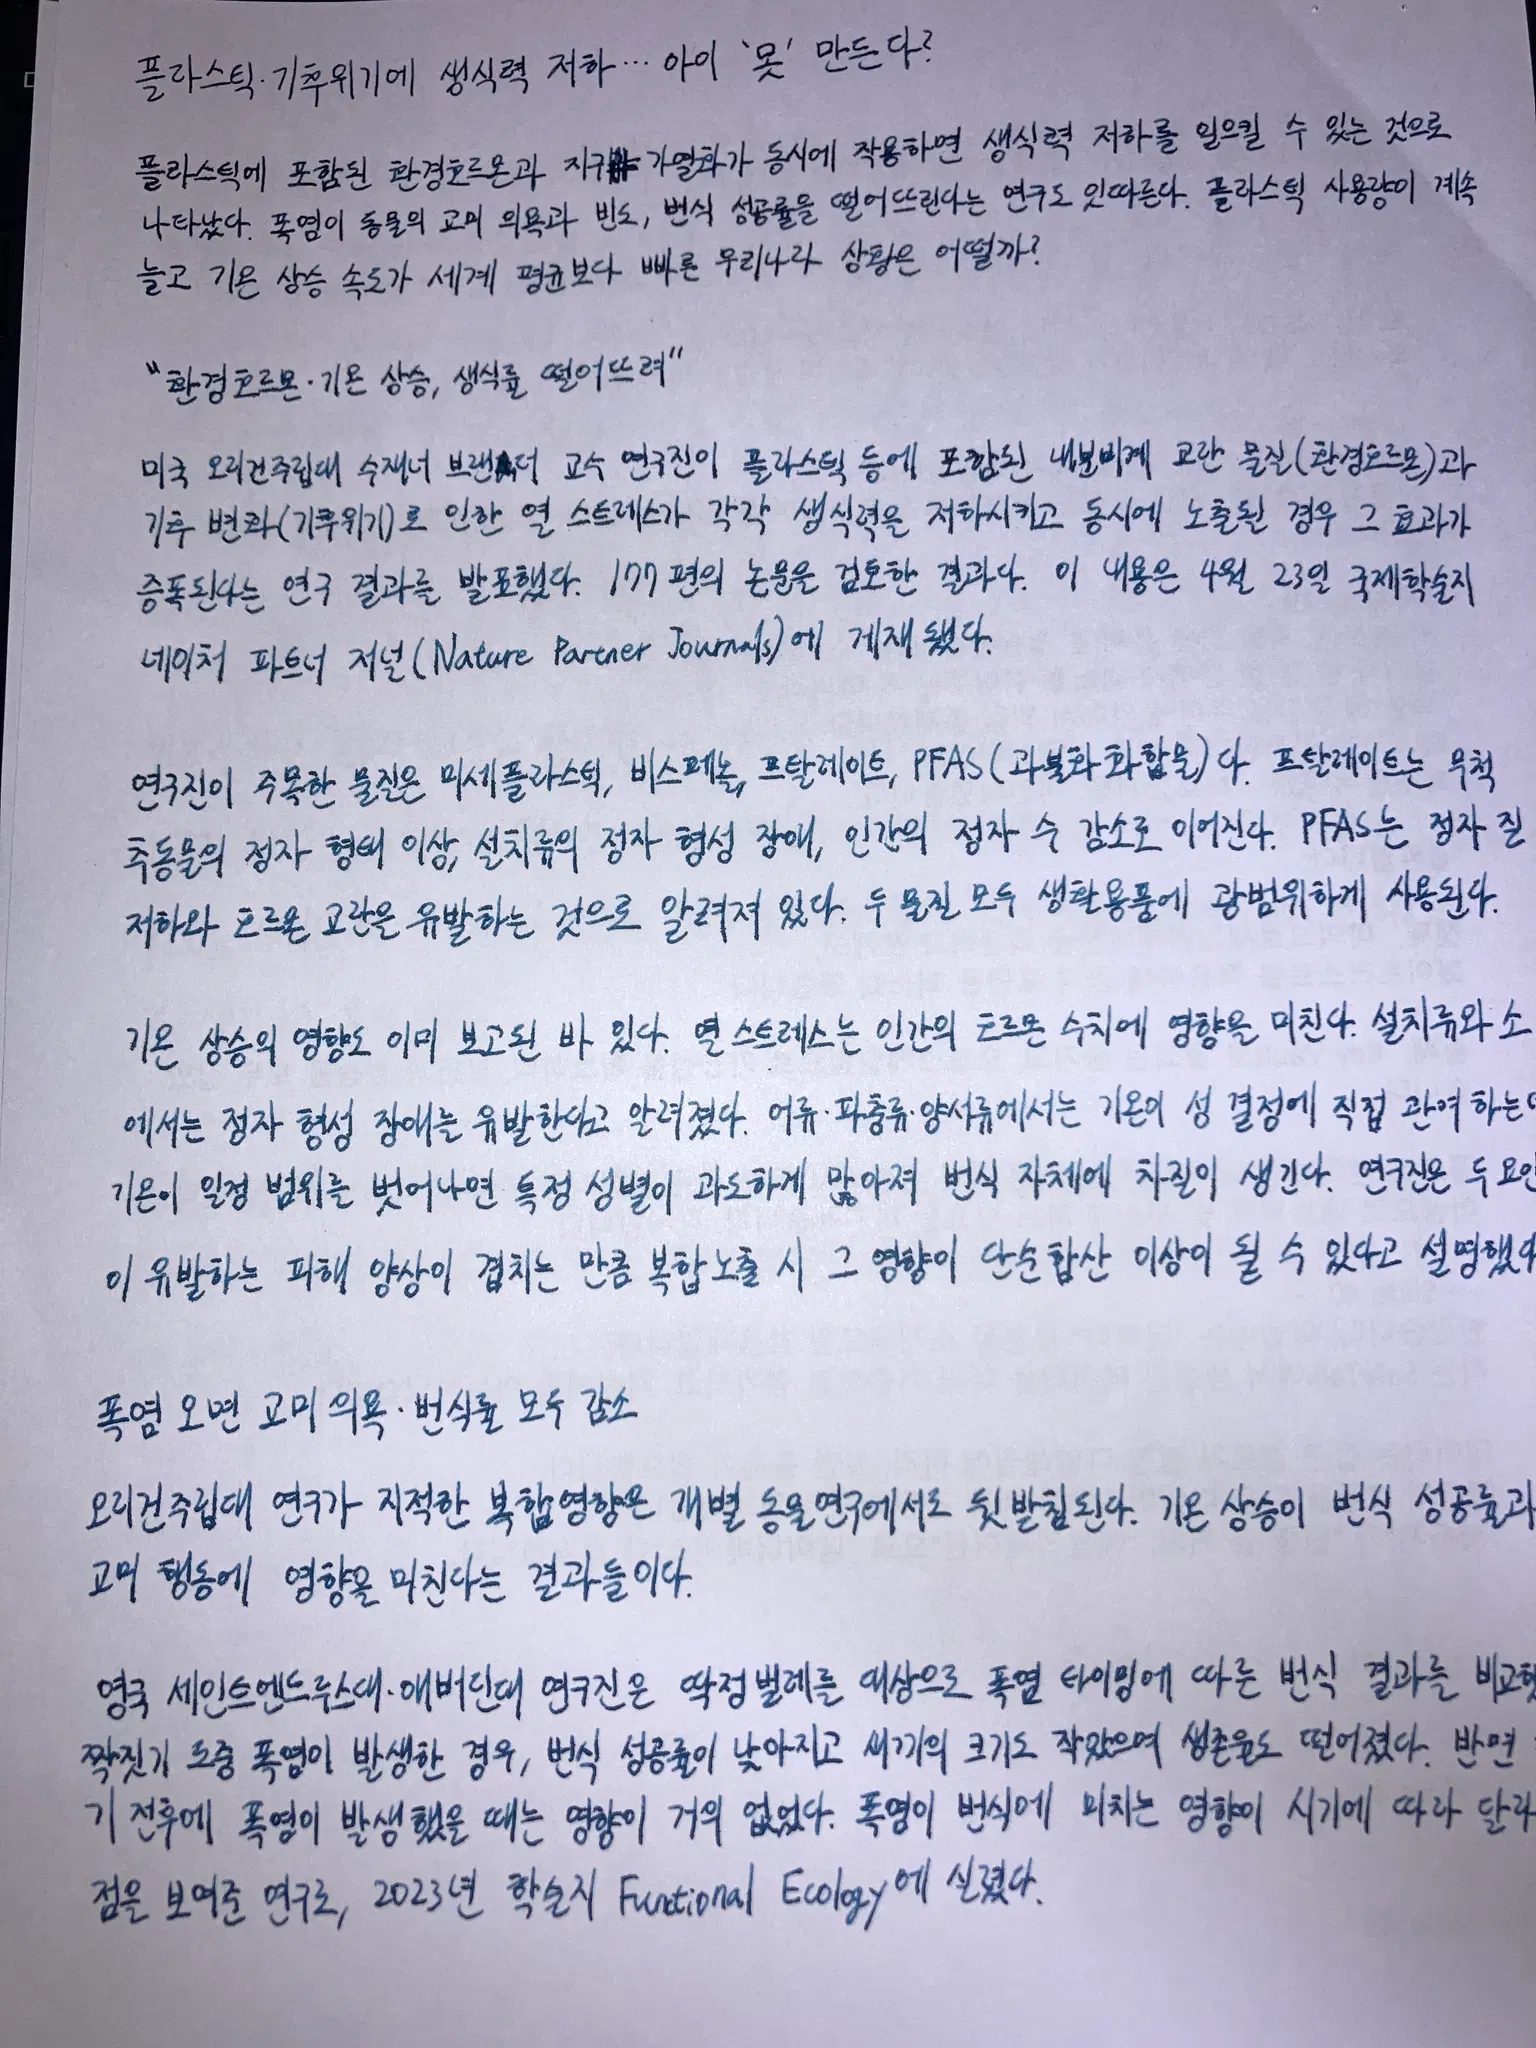 플라스틱·기후위기에 생식력 저하… 아이 '못' 만든다?
플라스틱에 포함된 환경호르몬과 지구 가열화가 동시에 작용하면 생식력 저하를 일으킬 수 있는 것으로
나타났다. 폭염이 동물의 교미 의욕과 빈도, 번식 성공률을 떨어뜨린다는 연구도 잇따른다. 플라스틱 사용량이 계속
늘고 기온 상승 속도가 세계 평균보다 빠른 우리나라 상황은 어떨까?
"환경호르몬·기온 상승, 생식률 떨어뜨려"
미국 오리건주립대 수재너 브랜더 교수 연구진이 플라스틱 등에 포함된 내분비계 교란 물질(환경호르몬)과
기후 변화(기후위기)로 인한 열 스트레스가 각각 생식력을 저하시키고 동시에 노출된 경우 그 효과가
증폭된다는 연구 결과를 발표했다. 177편의 논문을 검토한 결과다. 이 내용은 4월 23일 국제학술지
네이처 파트너 저널(Nature Partner Journals)에 게재됐다.
연구진이 주목한 물질은 미세플라스틱, 비스페놀, 프탈레이트, PFAS(과불화화합물)다. 프탈레이트는 무척
추동물의 정자 형태 이상, 설치류의 정자 형성 장애, 인간의 정자 수 감소로 이어진다. PFAS는 정자 질
저하와 호르몬 교란을 유발하는 것으로 알려져 있다. 두 물질 모두 생활용품에 광범위하게 사용된다.
기온 상승의 영향도 이미 보고된 바 있다. 열 스트레스는 인간의 호르몬 수치에 영향을 미친다. 설치류와 소
에서는 정자 형성 장애를 유발한다고 알려졌다. 어류·파충류·양서류에서는 기온이 성 결정에 직접 관여하는데
기온이 일정 범위를 벗어나면 특정 성별이 과도하게 많아져 번식 자체에 차질이 생긴다. 연구진은 두 요인
이 유발하는 피해 양상이 겹치는 만큼 복합노출 시 그 영향이 단순합산 이상이 될 수 있다고 설명했다
폭염 오면 교미 의욕·번식률 모두 감소
오리건주립대 연구가 지적한 복합영향은 개별 동물연구에서도 뒷받침된다. 기온 상승이 번식 성공률과
교미 행동에 영향을 미친다는 결과들이다.
영국 세인트앤드루스대·애버딘대 연구진은 딱정벌레를 대상으로 폭염 타이밍에 따른 번식 결과를 비교했
짝짓기 도중 폭염이 발생한 경우, 번식 성공률이 낮아지고 새끼의 크기도 작았으며 생존율도 떨어졌다. 반면
기 전후에 폭염이 발생했을 때는 영향이 거의 없었다. 폭염이 번식에 미치는 영향이 시기에 따라 달라
점을 보여준 연구로, 2023년 학술지 Functional Ecology에 실렸다.